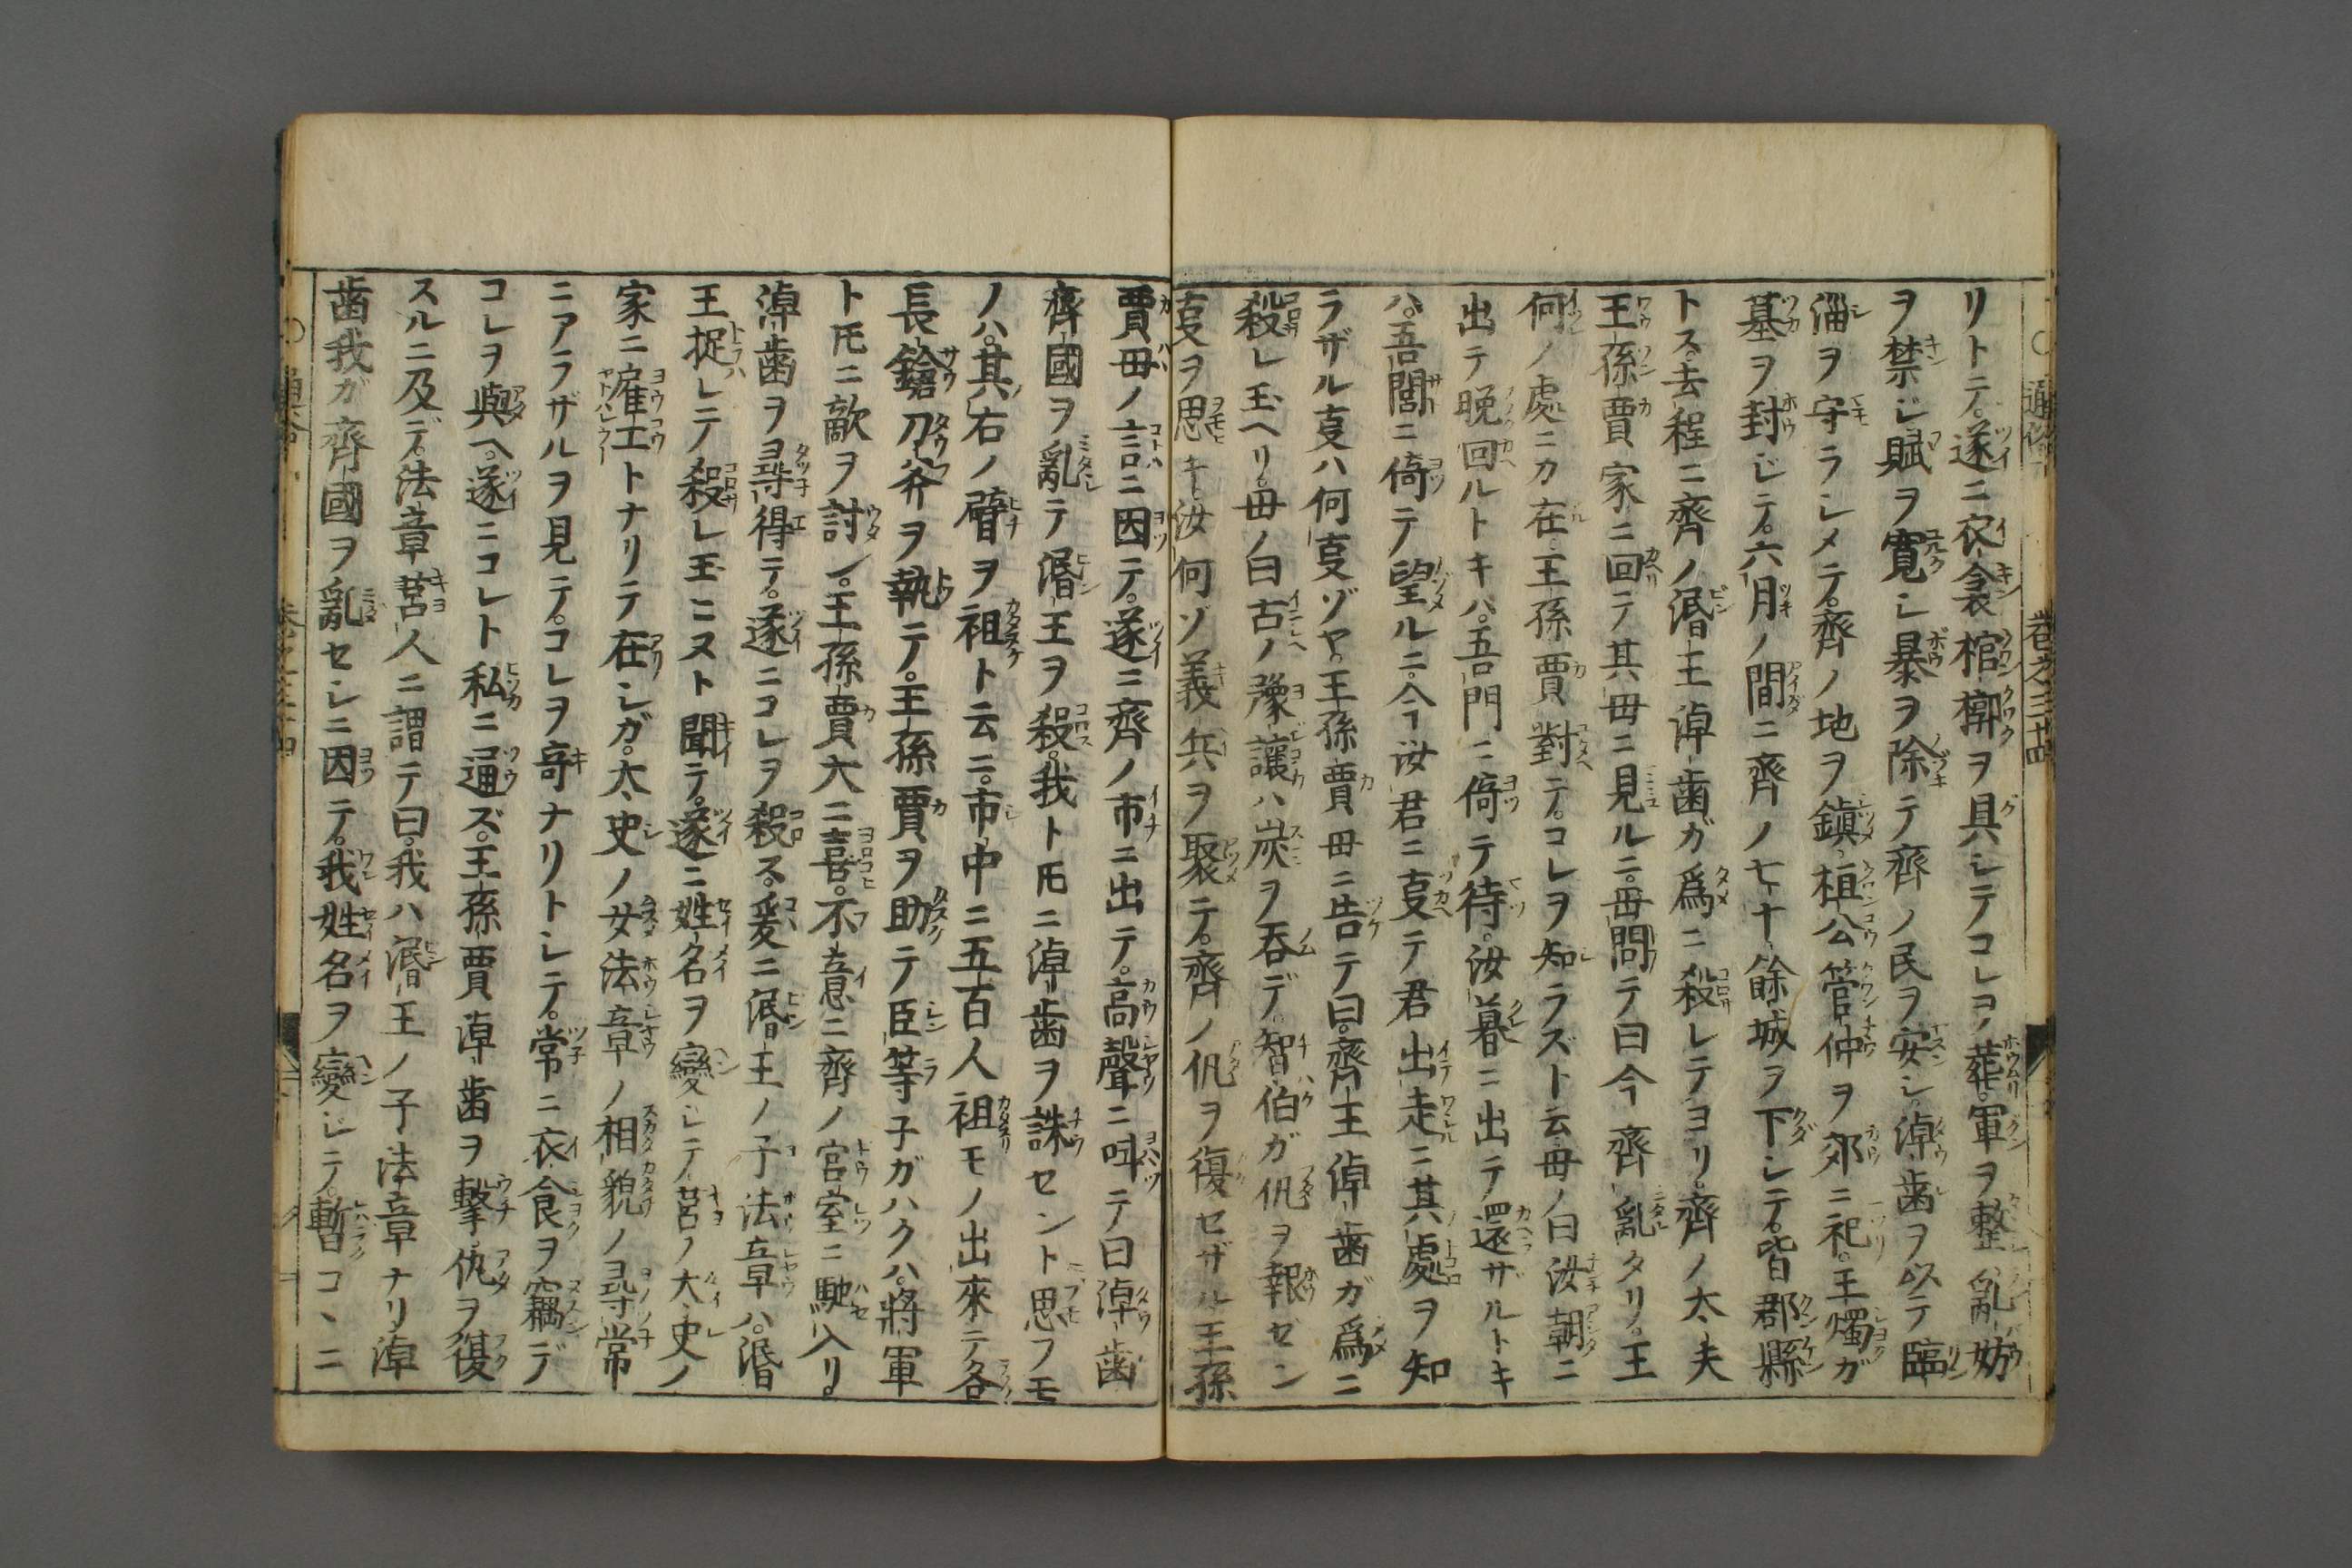 リトテ。遂ニ衣衾棺槨ヲ具シテコレヲ葬。軍ヲ整乱妨
ヲ禁ジ賦ヲ寛シ暴ヲ除テ齊ノ民ヲ安シ淖歯ヲ以テ臨
淄ヲ守ラシメテ。齊ノ地ヲ鎮。桓公管仲ヲ郊ニ祀。王燭ガ
墓ヲ封ジテ。六月ノ間ニ齊ノ七十餘城ヲ下シテ。皆郡縣
トス。去程ニ齊ノ湣王淖歯ガ為ニ殺レテヨリ。齊ノ太夫
王孫賈家ニ回テ其母ニ見ルニ。母問テ曰今齊乱タリ。王
何ノ處ニカ在王孫賈對テ。コレヲ知ラズト云母ノ曰汝朝ニ
出テ晩回ルトキハ。吾門ニ倚テ待。汝暮ニ出テ還ザルトキ
ハ。吾閭ニ倚テ望ルニ。今汝君ニ叓テ君出走ニ其處ヲ知
ラザル叓ハ何叓ゾヤ。王孫賈母ニ告テ曰。齊王淖歯ガ爲ニ
殺レ玉ヘリ。母ノ曰古ノ豫讓ハ炭ヲ呑デ。智伯ガ仇ヲ報ゼン
叓ヲ思キ汝何ゾ義兵ヲ聚テ。齊ノ仇ヲ復セザル王孫
賈母ノ言ニ因テ。遂ニ齊ノ市ニ出テ。高聲ニ呌テ曰淖歯
齊國ヲ亂テ湣王ヲ殺。我ト𪜈ニ淖歯ヲ誅セント思フモ
ノハ。其右ノ臂ヲ袒ト云ニ。市中ニ五百人袒モノ出來テ各
長鎗刀斧ヲ執テ。王孫賈ヲ助テ臣等子ガハクハ。將軍
ト𪜈ニ敵ヲ討ン。王孫賈大ニ喜。不意ニ齊ノ宮室ニ馳入リ。
淖歯ヲ尋得テ。遂ニコレヲ殺ス。爰ニ湣王ノ子法章ハ。湣
王捉レテ殺レ玉ヌト聞テ。遂ニ姓名ヲ變ジテ莒ノ太史ノ
家ニ雇工トナリテ在シガ。太史ノ女法章ノ相貌ノ尋常
ニアラザルヲ見テ。コレヲ奇ナリトシテ。常ニ衣食ヲ竊デ
コレヲ與ヘ。遂ニコレト私ニ通ズ。王孫賈淖歯ヲ擊。仇ヲ復
スルニ及デ。法章莒人ニ謂テ曰。我ハ湣王ノ子法章ナリ淖
歯我ガ齊國ヲ亂セシニ因テ。我姓名ヲ變ジテ。暫コヽニ